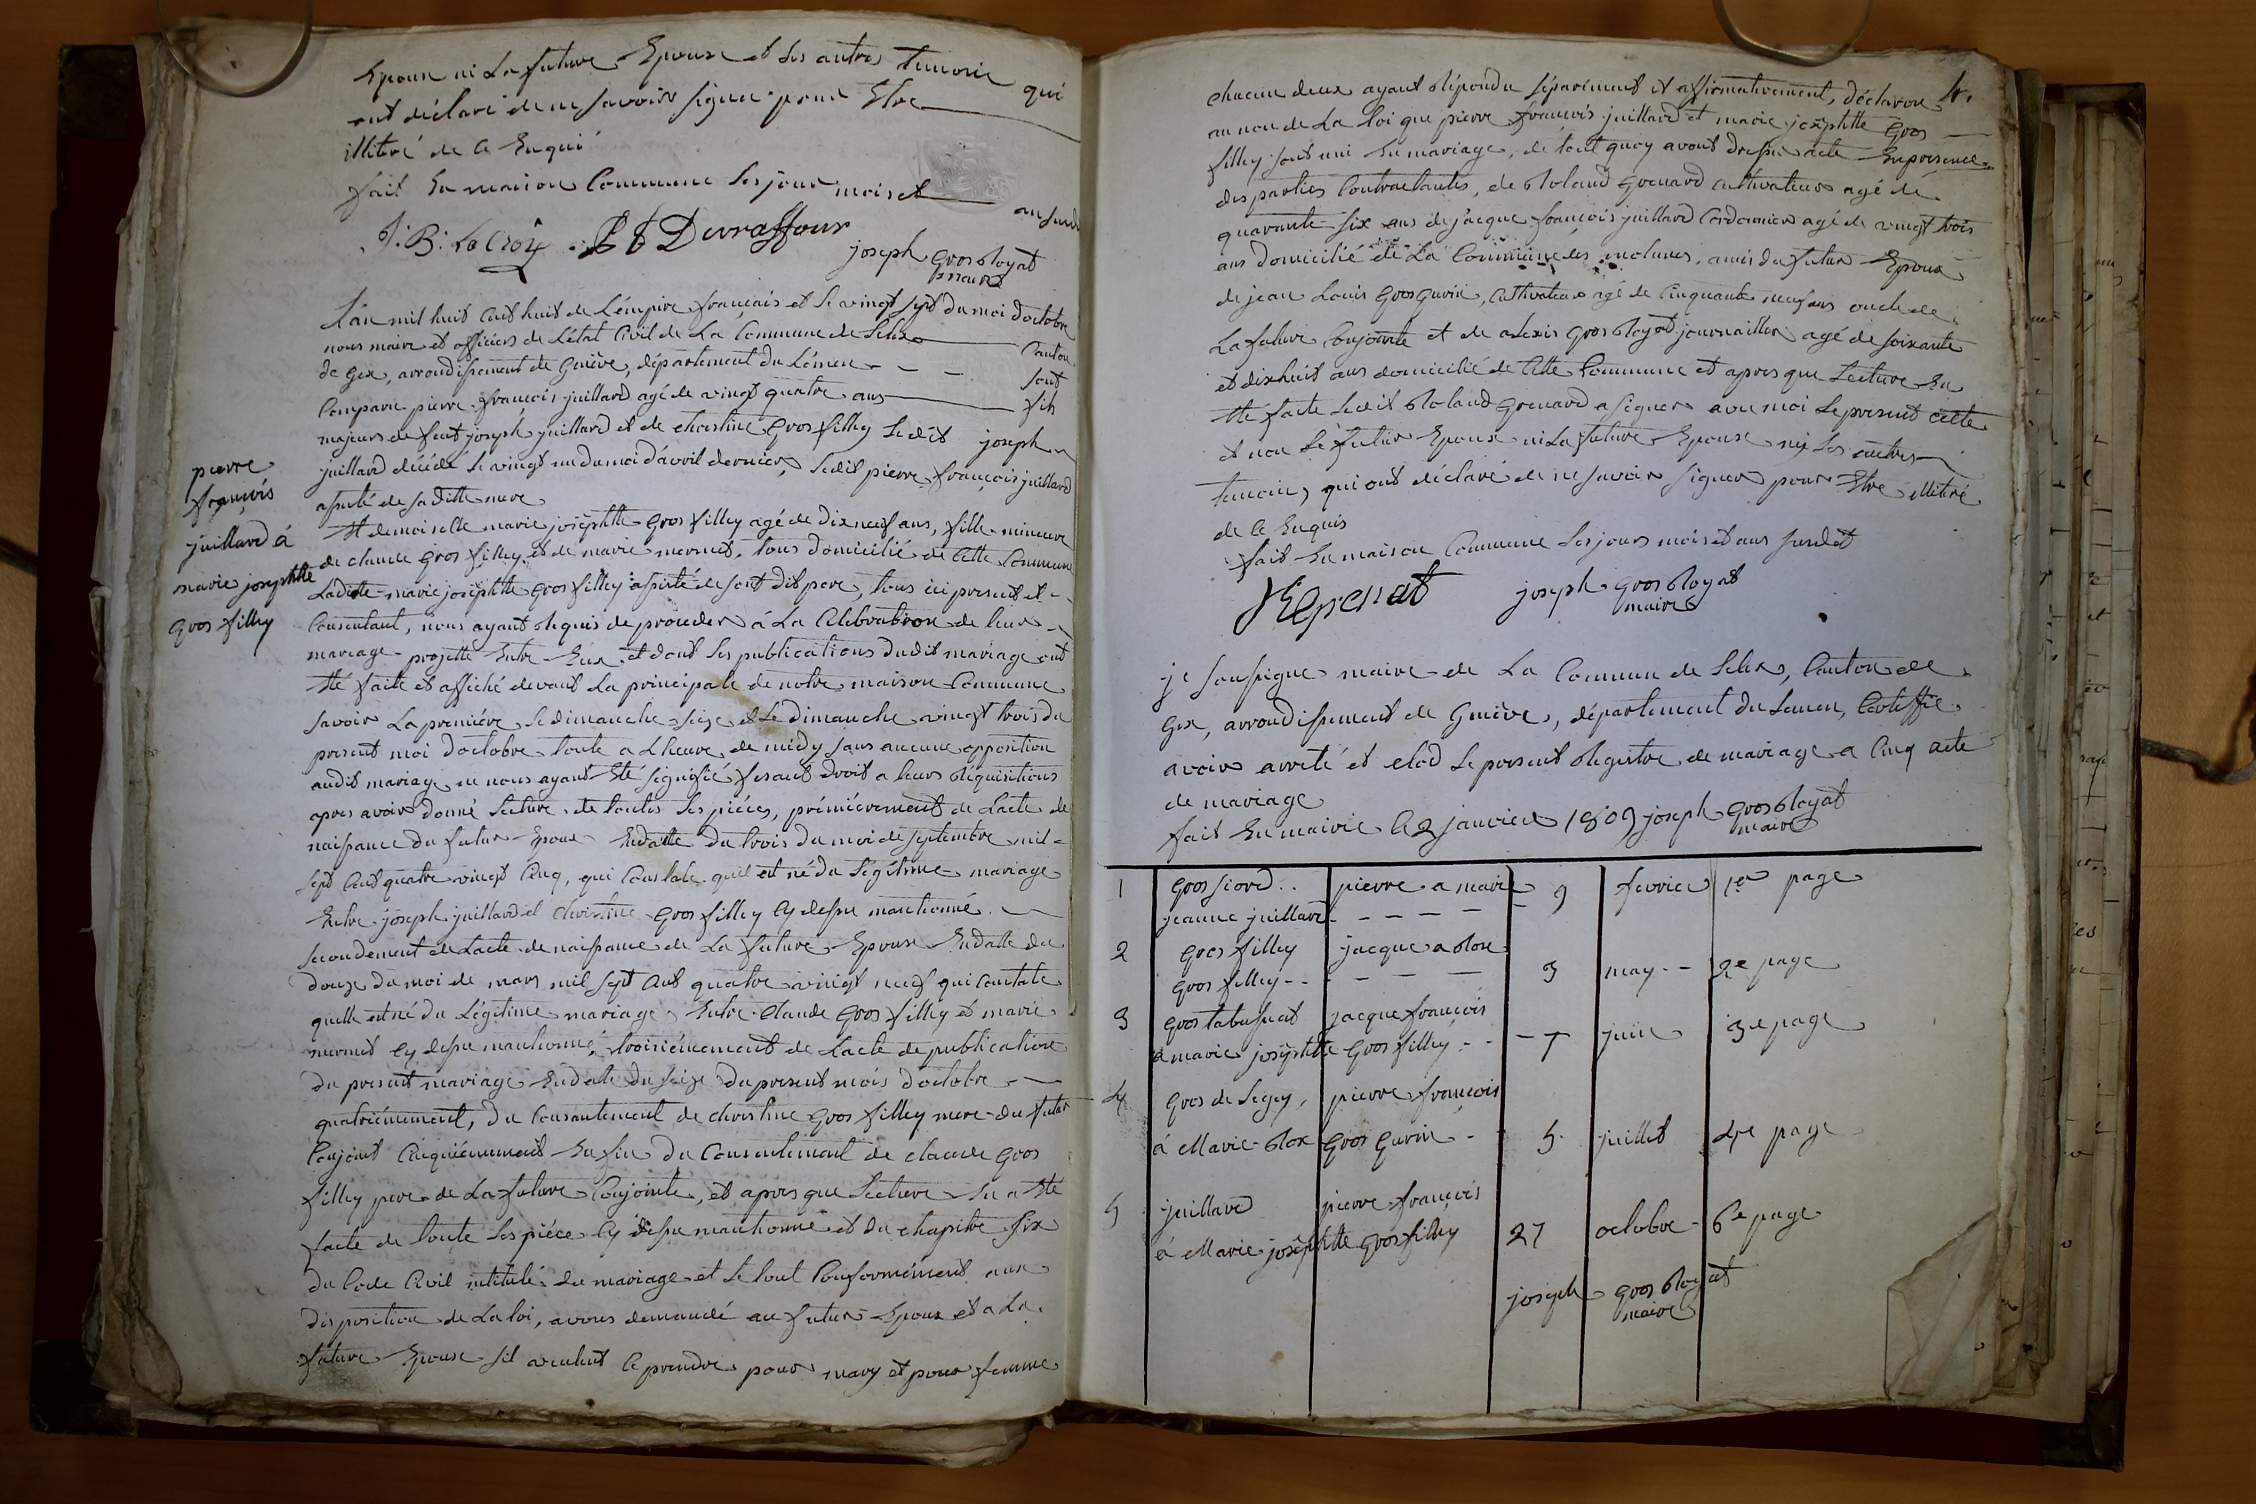 Epoux ni La future Epouse et Les autres temoins qui
ont déclaré de ne savoir signer pour Etre
illitiré de Ce Enquis
fait En maison Commune Les jours mois et an susd
J: B: La Croix Devraffour
joseph gros Royat
maire
L'an mil huit Cent huit de L'empire français et Le vingt sept du moi d'octobre
nous maire et officiers de L'état Civil de La Commune de Lelex Canton
de Gex, arrondissement de Genève, département du Léman Sont
Comparu pierre françois juillard agé de vingt quatre ans fils
majeurs de feut joseph juillard et de christine Gros filley Ledit joseph
juillard décédé Le vingt un du moi d'avril dernier, Ledit pierre françois juillard
assisté de sa ditte mere
Et demoiselle marie josephtte Gros filley agé de dix neuf ans, fille mineure
de claude gros filley et de marie mermet, tous domicilié de Cette Commune
Laditte marie josephtte gros filley assisté de sont dit pere, tous ici present et
Consentant, nous ayant Requis de proceder à La Célebration de leur
mariage projetté Entre Eux et dont Les publications dudit mariage ont
Eté faite et affiché devant La principale de notre maison Commune
savoir La premiére Le dimanche seize et Le dimanche vingt trois du
present moi d'octobre toute a Lheure de midy sans aucune opposition
audit mariage ne nous ayant Eté signifié fesant droit a leurs Réquisitions
apres avoir donné Lecture de toutes Les piéces, prémiérement de Lacte de
naissance du futur Epoux Endatte du trois du moi de septembre mil
sept Cent quatre vingt Cinq, qui Constate quil est né du Légitime mariage
Entre joseph juillard et Christine gros filley Cy dessu mantionné
secondement de Lacte de naissance de La future Epouse Endatte du
douze du moi de mars mil sept Cent quatre vingt neuf qui Contate
quelle est né du Légitime mariage Entre Claude Gros filley et marie
mermet Cy dessu mantionné, troisiémement de Lacte de publication
du present mariage Endate du seize du present mois d'octobre
quatriémement, du Consantement de christine gros filley mere du futur
Conjoint Cinquiémement Enfin du Consentement de claude gros
filley pere de La future Conjointe, et apres que Lecture En a Eté
facte de toute Les piéce Cy dessu mantionné et du chapitre six
du Code Civil intitulé du mariage et Le tout Conformément aux
disposition de La loi, avons demandé au futur Epoux et a La
future Epouse sil veulent Ce prendre pour mary et pour femme
pierre
françois
juillard à
marie josephtte
gros filley
4.
chacun deux ayant Répondu séparément et affirmativement, déclaron
au non de La loi que pierre françois juillard et marie josephtte Gros
filley sont uni En mariage, de tout quoy avont dressé acte Enpresence
des parties Contractantes, de Roland grenard cultivateur agé de
quarante six ans de jacque françois juillard Cordonnier agé de vingt trois
ans domicilié de La Commune des molunes, amis du futur Epoux
de jean Louis Gros gurin, Cultivateur agé de Cinquante neuf ans oncle de
La future Conjointe et de alexis gros Royat journaillier agé de soixante
et dix huit ans domicilié de Cette Commune et apres que Lecture En
Eté facte Ledit Roland Grenard a signer avec moi Le present acte
et non Le futur Epoux ni La future Epouse ny Les autres
temoin, qui ont déclaré de ne savoir signer pour Etre illitiré
de Ce Enquis
fait En maison Commune Les jours mois et ans susdit
joseph gros Royat
maire
je soussigne maire de La Commun de Lelex, Canton de
Gex, arrondissement de Genève, département du Leman, Certiffie
avoir arreté et clod Le present Registre de mariage a Cinq acte
de mariage
fait En mairie Ce 2 janvier 1809 joseph gros Royat
maire
1 gros fiord.. pierre a marie
jeanne juillard 9 fevrier 1er page
2 gros filley jacque a Rose
gros filley 3 may 2e page
3 gros tabussiat jacque françois
a marie josephtte Gros filley 7 juin 3e page
4 gros de Legey, pierre françois
à Marie Rose gros gurin 5 juillet 4e page
5 juillard pierre françois
à Marie josephtte gros filley 27 octobre 6e page
joseph gros Royat
maire